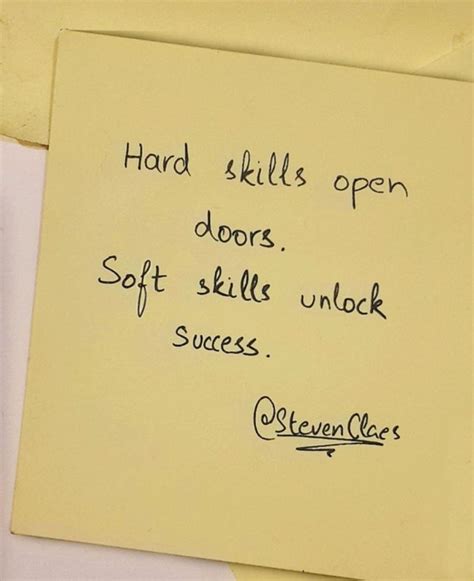 Hard skills open
doors.
Soft skills unlock
success.
@StevenClaes